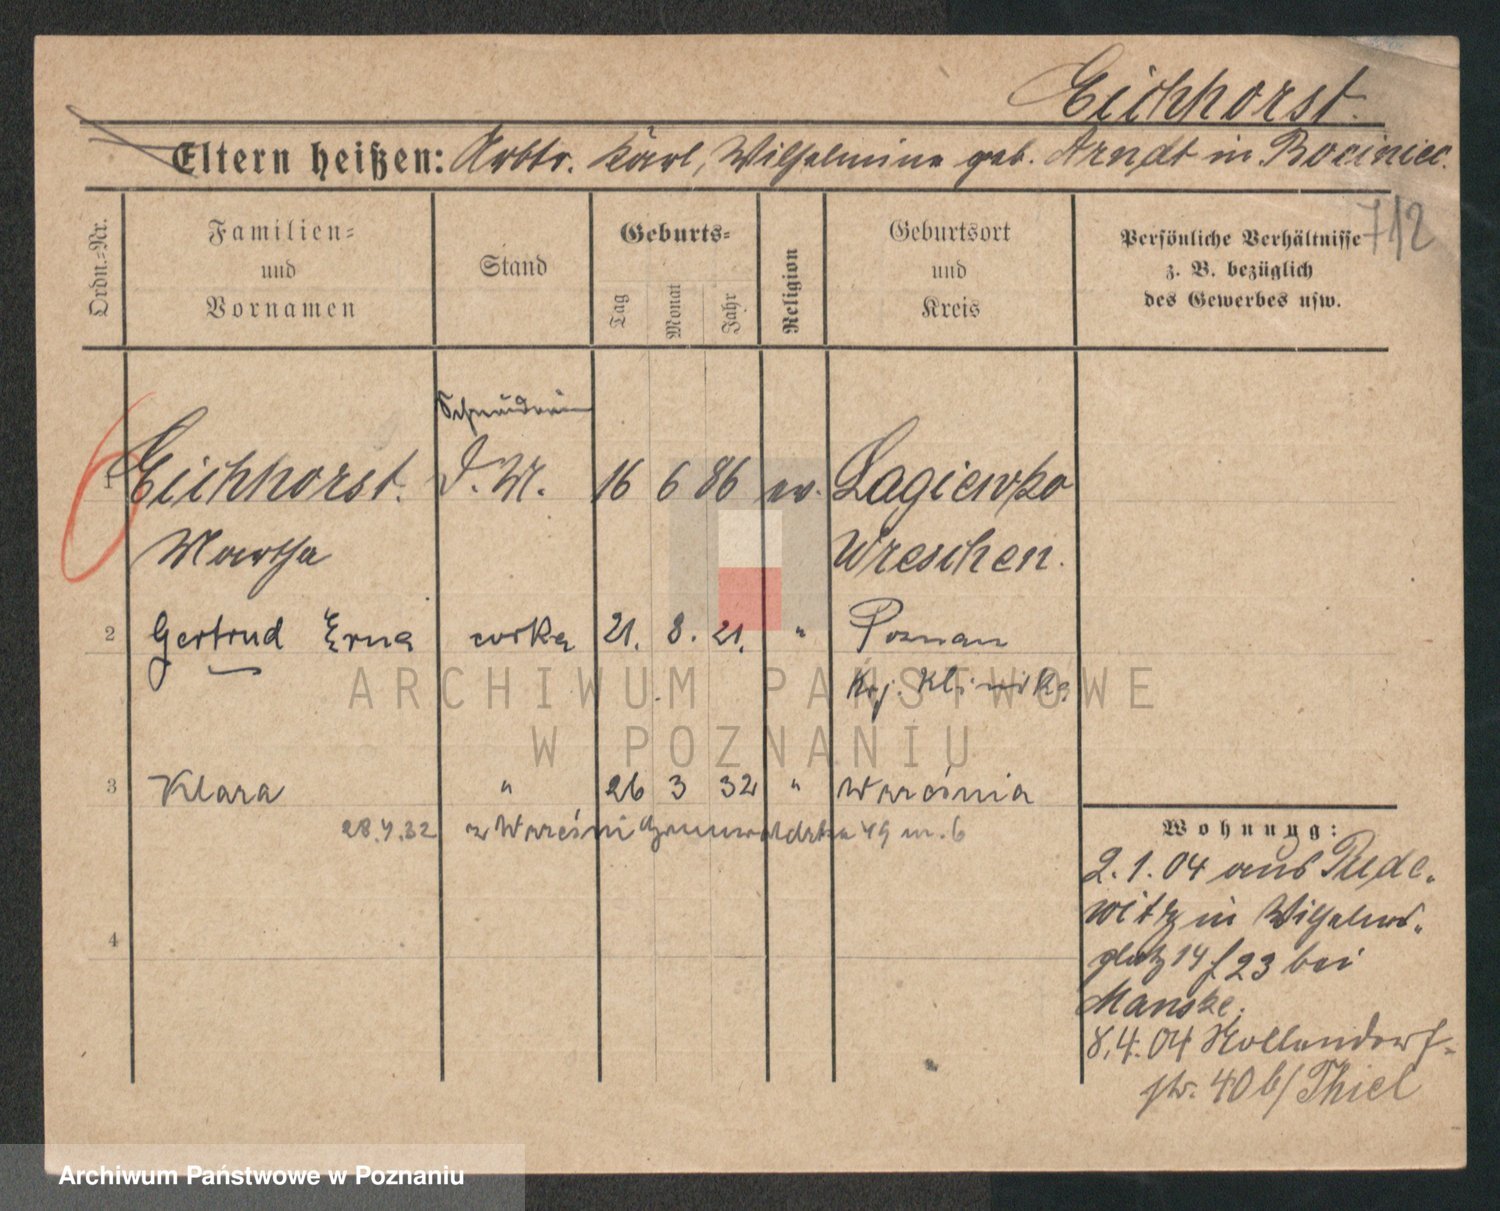 Eichhorst.
Eltern heißen: Arbtr. Karl, Wilhelmine geb. Arndt in Bociniec.
712
Ordn.-Nr.
Familien- und Vornamen
Stand
Geburts-
Tag
Monat
Jahr
Religion
Geburtsort und Kreis
Persönliche Verhältnisse
z. B. bezüglich
des Gewerbes usw.
Schneiderin
1 Eichhorst. D. M. 16 6 86 ev. Lagiewko
Martha Wreschen.
2 Gertrud Erna córka 21. 8. 21. " Poznan
Krj. Klinika
ARCHIWUM PAŃSTWOWE
W POZNANIU
3 Klara " 26 3 32 " Września
28.4.32 z Wrześni 49 m. 6
4
Wohnung:
2.1.04 aus Rude-
witz in Wilhelms-
platz 14 f 23 bei
Manske.
8.4.04 Hollendorf-
str. 40 b/ Thiel
Archiwum Państwowe w Poznaniu